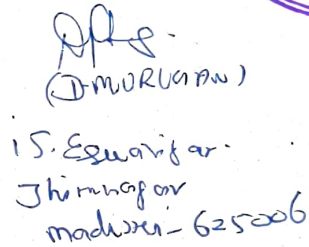 (D. MURUGAN)
15. Eswarigar.
Thirunagar
madurai - 625006